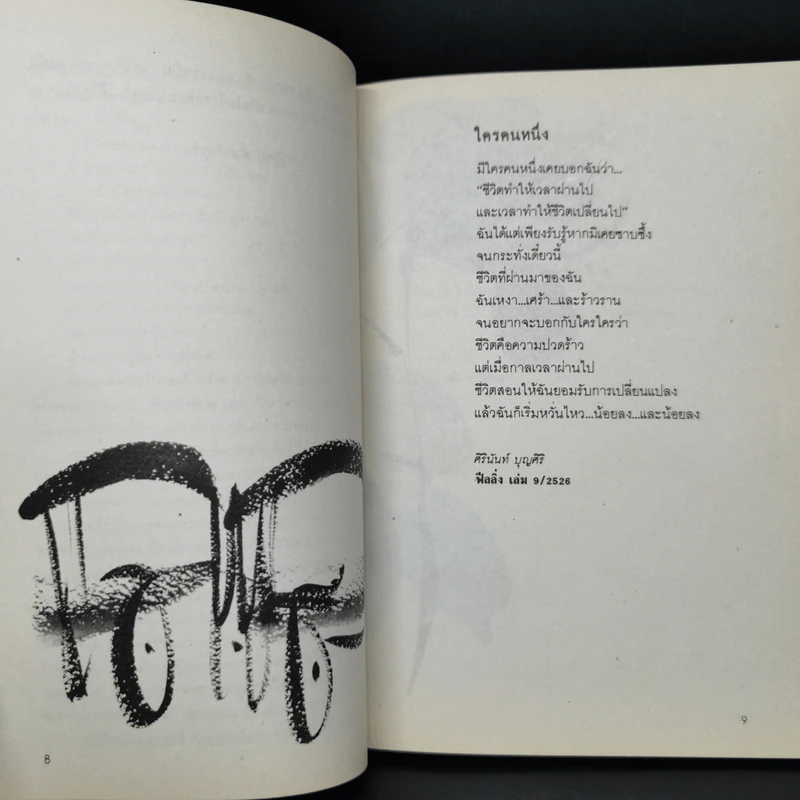 8
ใครคนหนึ่ง
มีใครคนหนึ่งเคยบอกฉันว่า...
"ชีวิตทำให้เวลาผ่านไป
และเวลาทำให้ชีวิตเปลี่ยนไป"
ฉันได้แต่เพียงรับรู้หากมิเคยซาบซึ้ง
จนกระทั่งเดี๋ยวนี้
ชีวิตที่ผ่านมาของฉัน
ฉันเหงา...เศร้า...และร้าวราน
จนอยากจะบอกกับใครใครว่า
ชีวิตคือความปวดร้าว
แต่เมื่อกาลเวลาผ่านไป
ชีวิตสอนให้ฉันยอมรับการเปลี่ยนแปลง
แล้วฉันก็เริ่มหวั่นไหว...น้อยลง...และน้อยลง
ศิรินันท์ บุญศิริ
ฟีลลิ่ง เล่ม 9/2526
9